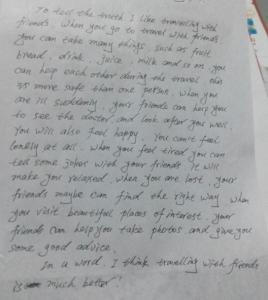 To tell the truth I like travelling with
friends. When you go to travel with friends
you can take many things, such as fruit
bread, drink, juice, milk and so on. you
can help each other during the travel
is more safe than one person. when you
are ill suddenly, your friends can help you
to see the doctor and look after you well.
You will also feel happy. You can't feel
lonely at all. when you feel tired you can
some jokes with your friends. it will
make you relaxed. when you are lost, your
friends maybe can find the right way. when
you visit beautiful places of interest. your
friends can help you take photos and give you
some good advice.
In a word, I think travelling with friends
is much better!